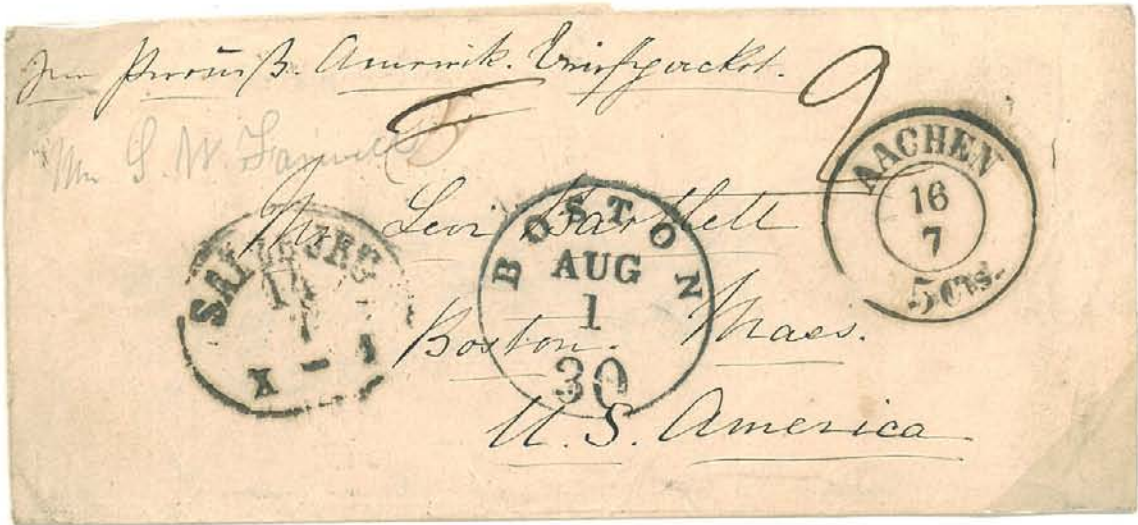 Preuß. Amerik. Briefpacket.
2
Mr S. W.
Mr Leon Bartlett
Boston. Mass.
U. S. America
AACHEN
16
7
5 Cts.
BOSTON
AUG
1
30
SALZBURG
X - 1